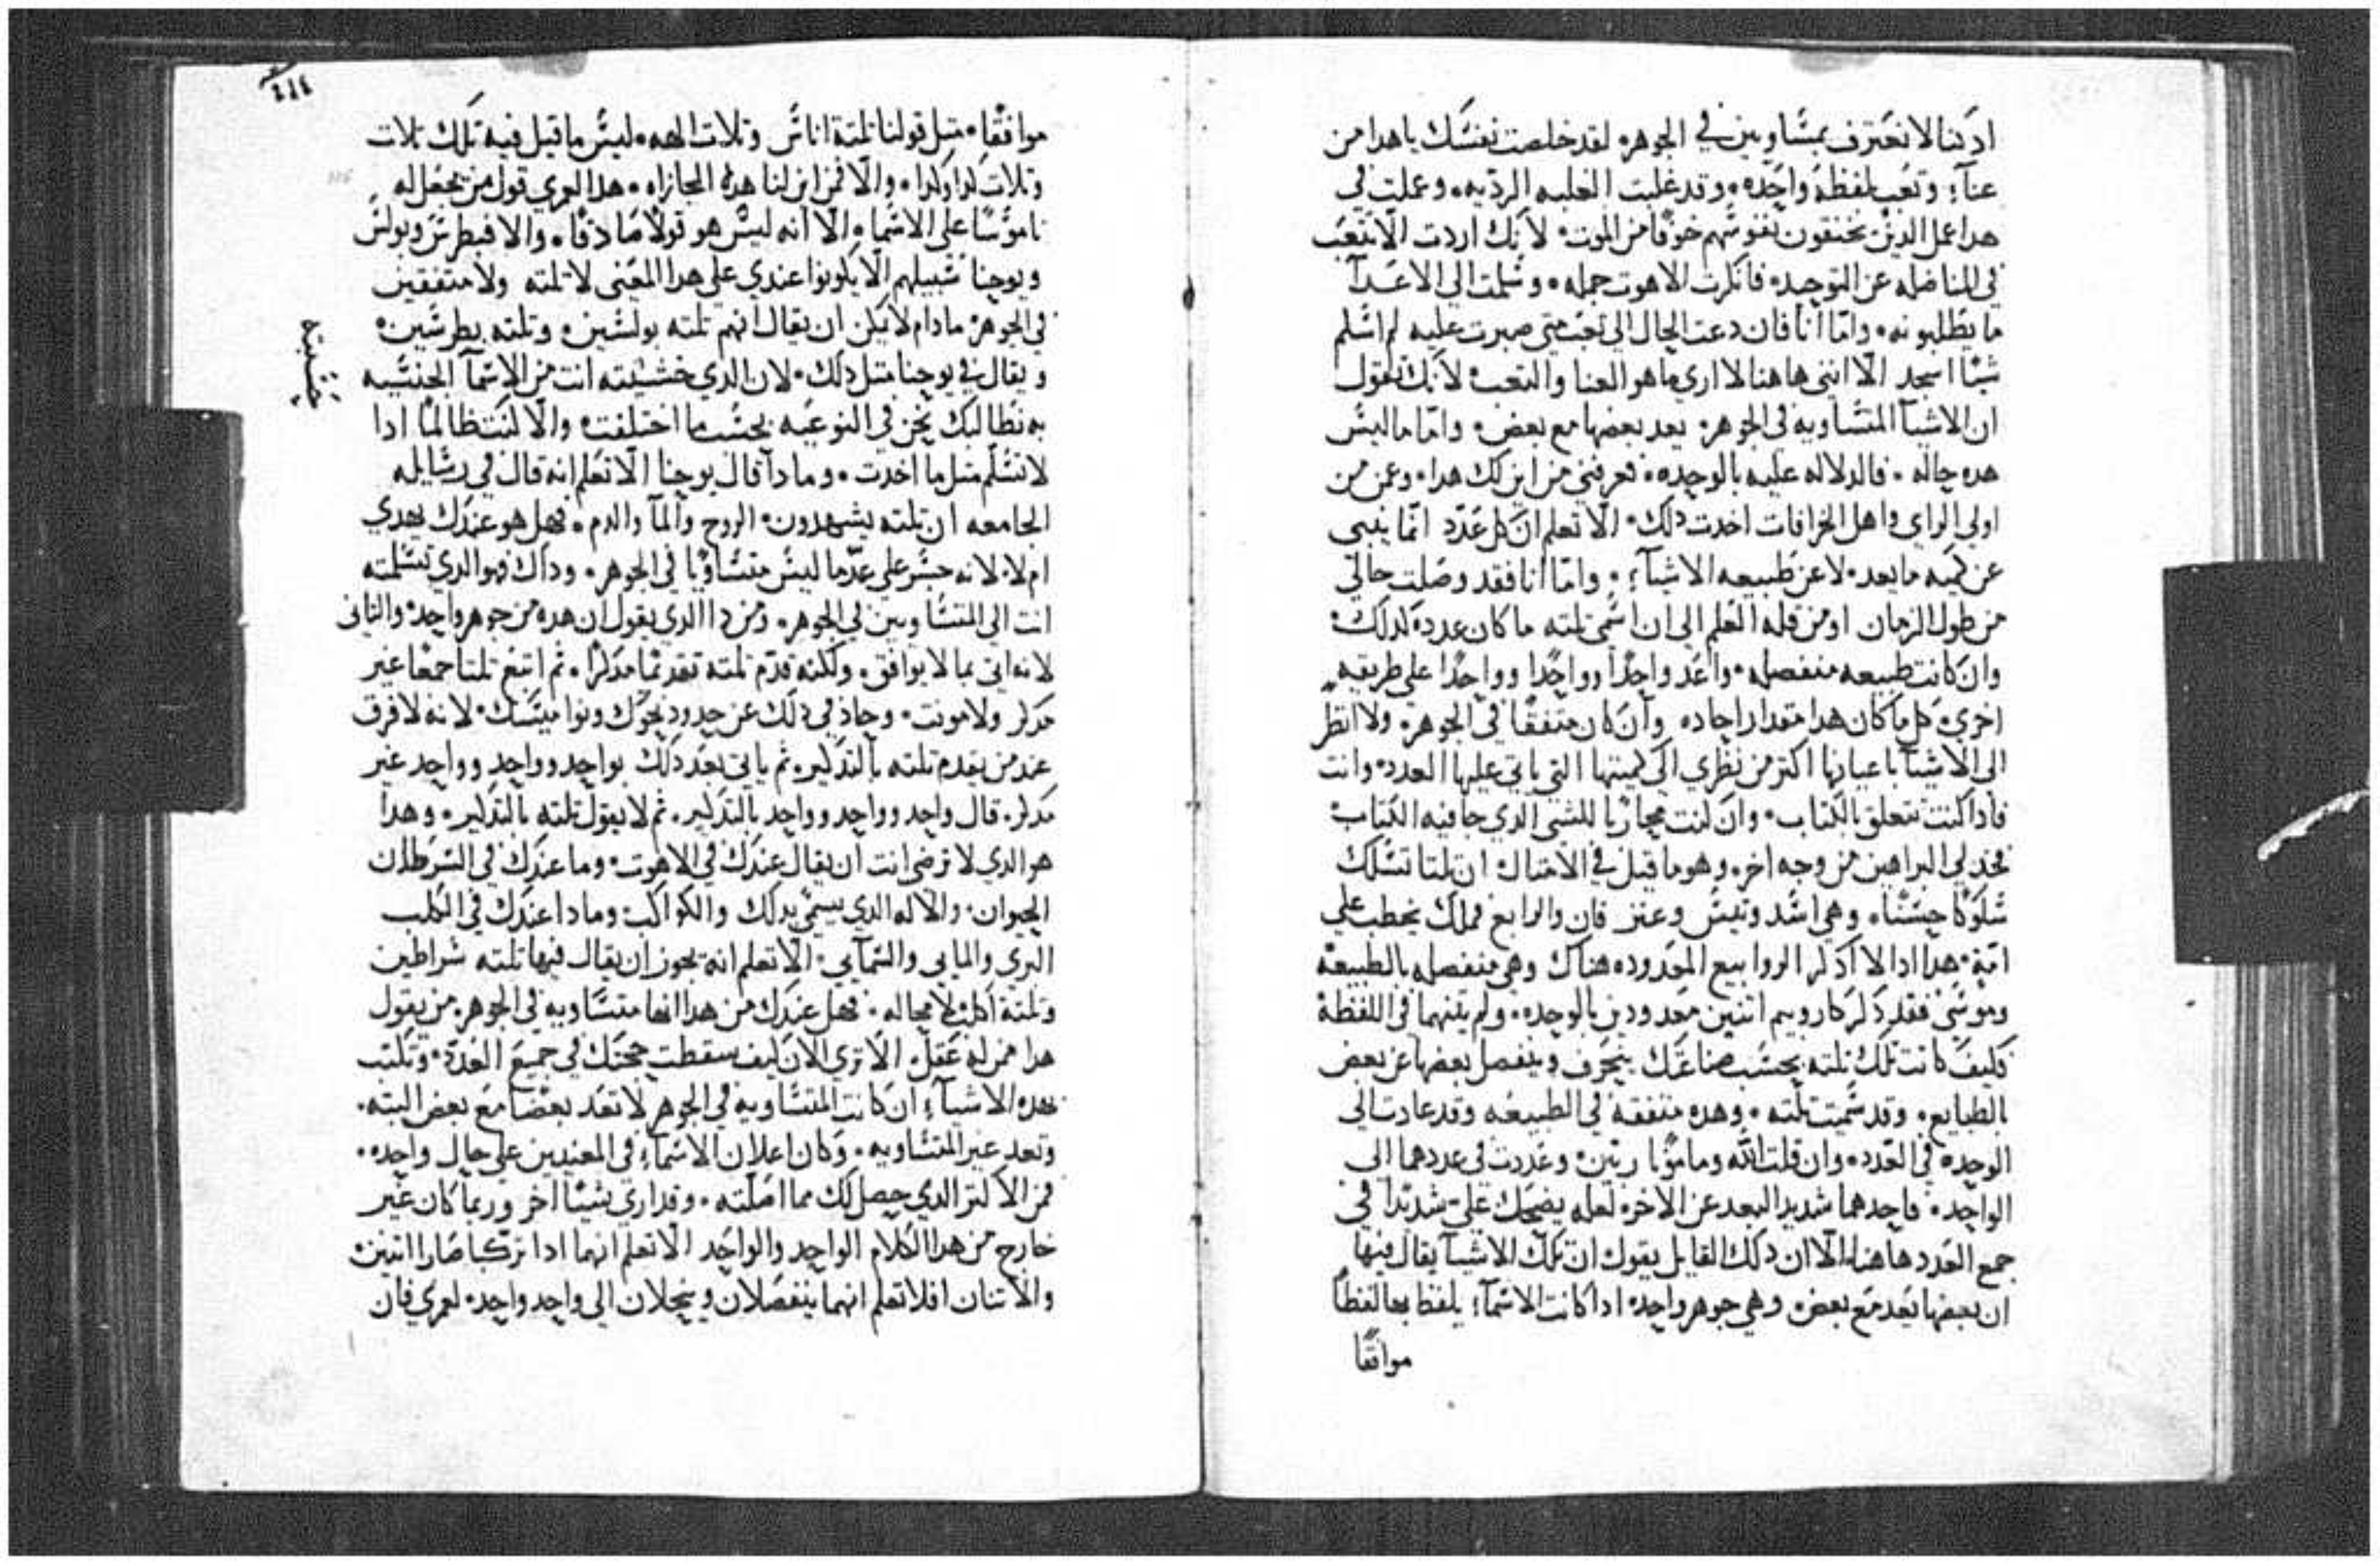 اد كنا لا نعترف بمتساوين في الجوهر لقد خلصت نفسك يا هدا من
عناء وتعب لفظة واحده وقد غلبت الغلبه الرديه وعملت في
هدا عمل الدين يختنقون نفوسهم خوفا من الموت لانك اردت الا تتعب
في المناضله عن التوحيد فانكرت الاهوت جمله وسلمت الي الاعدآ
ما يطلبونه واما انا فان دعت الحال الي تعب متي صبرت عليه لم اسلم
شيا اسجد الا انني هاهنا لا اري ما هو العنا والتعب لانك تقول
ان الاشيآ المتساويه في الجوهر يعد بعضها مع بعض واما ما ليس
هده حاله فالدلاله عليه بالوحده فعرفني من اين لك هدا وعن من
اولي الراي واهل الخرافات اخدت دلك الا تعلم ان كل عدد انما ينبي
عن كميه ما يعد لا عن طبيعه الاشيآء واما انا فقد وصلت حالي
من طول الزمان او من قله العلم الي ان اسمي تلته ما كان عدده كدلك
وان كانت طبيعه منفصله واعد واحدا وواحدا وواحدا علي طريقه
اخري كل ما كان هدا مقدار احاده وان كان متفقا في الجوهر ولا انظر
الي الاشيآ باعيانها اكتر من نظري الي كميتها التي ياتي عليها العدد وانت
فادا كنت تتعلق بالكتاب وان كنت محاربا للشي الدي جا فيه الكتاب
فخد لي البراهين من وجه اخر وهو ما قيل في الامتال ان تلتا تسلك
سلوكا حسنا وهي اسد وتيس وعنز فان والرابع فملك يخطب علي
امة هدا ادا لا ادكر الروابيع المعدوده هناك وهي منفصله بالطبيعة
وموسي فقد دكر كاروبيم اتنين معدودين بالوحده ولم يتنهما في اللفظة
فكيف كانت تلك تلته بحسب صناعتك بتحرف وينفصل بعضها عن بعض
بالطبايع وقد سميت تلته وهده متفقة في الطبيعه وقد عادت الي
الوحده في العدد وان قلت الله ومامونا ربين وعددت في عددهما الي
الواحد فاحدهما شديد البعد عن الاخر لعله يضحك علي شديدا في
جمع العدد هاهنا الا ان دلك القايل يقول ان تلك الاشيآ يقال فيها
ان بعضها يعد مع بعض وهي جوهر واحد ادا كانت الاسمآء يلفظ بها لفظا
موافقا
٤١٤
موافقا متل قولنا تلتة اناس وتلات الهه ليس ما قيل فيه تلك تلات
وتلات كدا وكدا والا فمن اين لنا هده المجازاه هدا لعمري قول من يجعل له
ناموسا علي الاسماء الا انه ليس هو قولا صادقا والا فبطرس وبولس
ويوحنا سبيلهم الا يكونوا عندي علي هدا المعني لا تلته ولا متفقين
في الجوهر ما دام لا يمكن ان يقال انهم تلته بولسين وتلته بطرسين
ويقال في يوحنا متل دلك لان الدي انت من الاسمآ الجنسيه
به نطالبك نحن في النوعيه بحسب ما اختلفت والا كنت ظالما ادا
لا تسلم متل ما اخدت وما دا قال يوحنا الا تعلم انه قال في رسايله
الجامعه ان تلته يشهدون الروح والمآ والدم فهل هو عندك يهدي
ام لا لانه جسر علي عد ما ليس متساويا في الجوهر وداك فهو الدي تسلمته
انت الي المتساويين في الجوهر ومن دا الدي يقول ان هده من جوهر واحد والتاني
لانه اتي بما لا يوافق ولكنه قدم تلته تقدما مدكرا تم اتبع تلتا جمعا غير
مدكر ولا مونت وحاد في دلك عن حدود نحوك ونواميسك لانه لا فرق
عند من يقدم تلته بالتدكير تم ياتي بعد دلك بواحد وواحد وواحد غير
مدكر قال واحد وواحد وواحد بالتدكير تم لا يقول تلته بالتدكير وهدا
هو الدي لا ترضي انت ان يقال عندك في الاهوت وما عندك في السرطان
الحيوان والاله الدي يسمي بدلك والكواكب وما دا عندك في الكلب
البري والمايي والسمآيي الا تعلم انه يجوز ان يقال فيها تلته سراطين
وتلتة اكلب لا محاله فهل عندك من هدا انها متساويه في الجوهر من يقول
هدا ممن له عقل الا تري الان كيف سقطت حجتك في جميع العدد وتكتب
بهده الاشيآء ان كانت المتساويه في الجوهر لا تعد بعضا مع بعض البته
وتعد غير المتساويه وكان اعلان الاسمآء في المعنيين علي حال واحده
فمن الاكتر الدي حصل لك مما اصلته وقد اري شيا اخر وربما كان غير
خارج من هدا الكلام الواحد والواحد الا تعلم انهما ادا تركبا صارا اتنين
والاتنان افلا تعلم انهما ينفصلان وينحلان الي واحد واحد لعمري فان